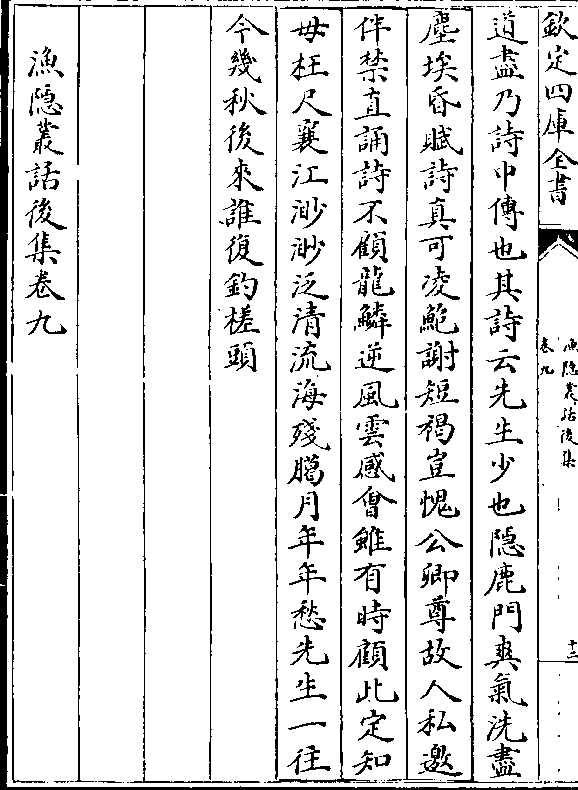 欽定四庫全書
漁隱叢話後集
卷九
十三
道盡乃詩中傳也其詩云先生少也隱鹿門爽氣洗盡
塵埃昏賦詩真可凌鮑謝短褐豈愧公卿尊故人私邀
伴禁直誦詩不顧龍鱗逆風雲感會雖有時顧此定知
毋枉尺襄江渺渺泛清流海殘臈月年年愁先生一往
今幾秋後來誰復釣槎頭
漁隱叢話後集卷九